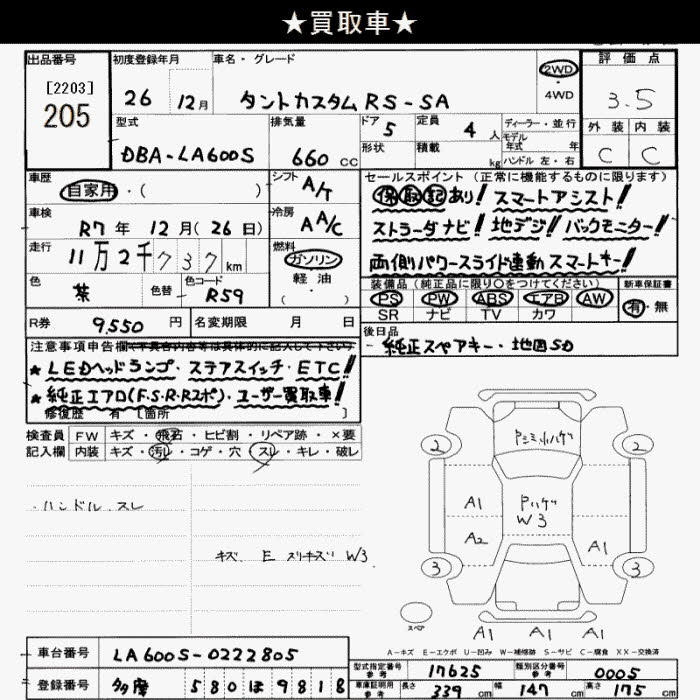 ★買取車★
出品番号 [2203] 205
初度登録年月 26 12月
車名・グレード タントカスタム RS-SA
2WD・4WD
評価点 3.5
外装 C 内装 C
型式 DBA-LA600S
排気量 660 cc
ドア 5
形状
定員 4 人
積載 kg
ディーラー・並行
モデル年式 年
ハンドル 左・右
車歴 自家用・( )
シフト A/T
車検 R7年 12月(26日)
冷房 AA/C
走行 11万2千737km
燃料 ガソリン 軽油 ( )
色 茶 色替
色コード R59
R券 9,550円
名変期限 月 日
セールスポイント (正常に機能するものに限ります)
保取記あり! スマートアシスト!
ストラーダナビ! 地デジ! バックモニター!
両側パワースライド連動 スマートキー!
装備品(純正品に限り○をつけてください)
PS PW ABS エアB AW
SR ナビ TV カワ
新車保証書 有・無
後日品
- 純正スペアキー・地図SD
注意事項申告欄
★LEDヘッドランプ・ステアスイッチ・ETC!
★純正エアロ(F.S.R.Rスポ)・ユーザー買取車!
修復歴 有 [箇所 ]
検査員記入欄
FW キズ・飛石・ヒビ割・リペア跡・×要
内装 キズ・汚レ・コゲ・穴・スレ・キレ・破レ
・ハンドル スレ
キズ E スリキズ W3
2 2
A1
A2
PハゲW3
A1
3 3
スペア
A1 A1 A1
A-キズ E-エクボ U-凹み W-補修跡 S-サビ C-腐食 XX-交換済
車台番号 LA600S-0222805
登録番号 多摩 580 ほ 9818
型式指定番号 参考 17625
類別区分番号 参考 0005
車庫証明用 参考 長さ 339 cm 幅 147 cm 高さ 175 cm